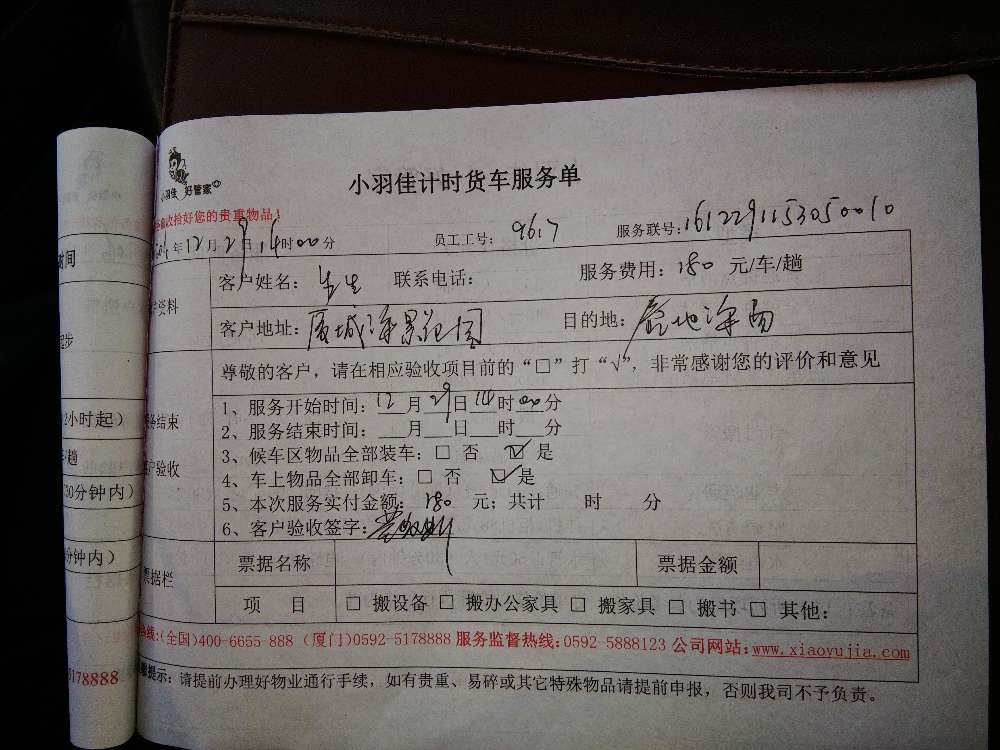 小羽佳 好管家
小羽佳计时货车服务单
收拾好您的贵重物品！
年12月29日14时00分 员工工号：9617 服务联号：1612291153050010
资料
客户姓名： 联系电话： 服务费用：180 元/车/趟
客户地址： 目的地：
尊敬的客户，请在相应验收项目前的“□”打“√”，非常感谢您的评价和意见
务结束
户验收
1、服务开始时间：12月29日14时00分
2、服务结束时间：___月___日___时___分
3、候车区物品全部装车：□ 否 ☑ 是
4、车上物品全部卸车：□ 否 ☑ 是
5、本次服务实付金额：180 元；共计 时 分
6、客户验收签字：
票据栏
票据名称 票据金额
项 目 □ 搬设备 □ 搬办公家具 □ 搬家具 □ 搬书 □ 其他：
热线:(全国)400-6655-888 (厦门)0592-5178888 服务监督热线:0592-5888123 公司网站:www.xiaoyujia.com
提示：请提前办理好物业通行手续，如有贵重、易碎或其它特殊物品请提前申报，否则我司不予负责。
时间
起步
2小时起）
趟
30分钟内）
分钟内）
5178888